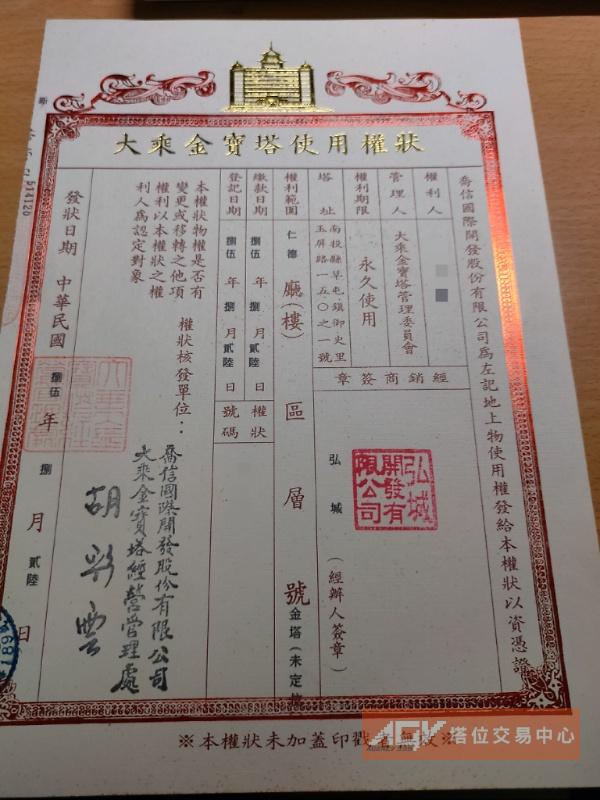 大乘金寶塔使用權狀
喬信國際開發股份有限公司為左記地上物使用權發給本權狀以資憑證
權利人
管理人 大乘金寶塔管理委員會
權利期限 永久使用
塔址 南投縣草屯鎮御史里
玉屏路一五〇之一號
經銷商簽章
弘城
開發有
限公司
弘城 (經辦人簽章)
權利範圍 仁德 廳(樓) 區 層 號 金塔(未定
繳款日期 捌伍 年 捌 月 貳陸 日
登記日期 捌伍 年 捌 月 貳陸 日
權狀
號碼
本權狀物權是否有
變更或移轉之他項
權利以本權狀之權
利人為認定對象
權狀核發單位:
喬信國際開發股份有限公司
大乘金寶塔經營管理處
胡彩雲
發狀日期 中華民國 捌伍 年 捌 月 貳陸 日
※本權狀未加蓋印戳
塔位交易中心